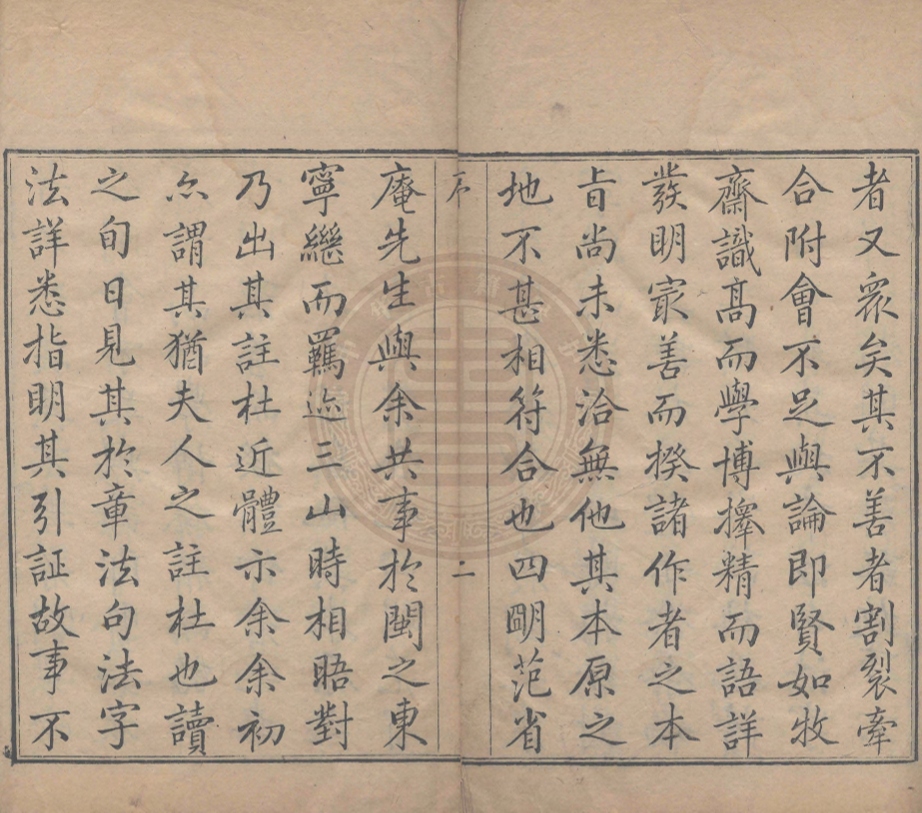 者又衆矣其不善者割裂牽
合附會不足與論即賢如牧
齋識髙而學博擇精而語詳
發明寂善而揆諸作者之本
旨尚未悉洽無他其本原之
地不甚相符合也四明范省
序
二
庵先生與余共事於閩之東
寧繼而羈迹三山時相晤對
乃出其註杜近體示余余初
亦謂其猶夫人之註杜也讀
之旬日見其於章法句法字
法詳悉指明其引証故事不